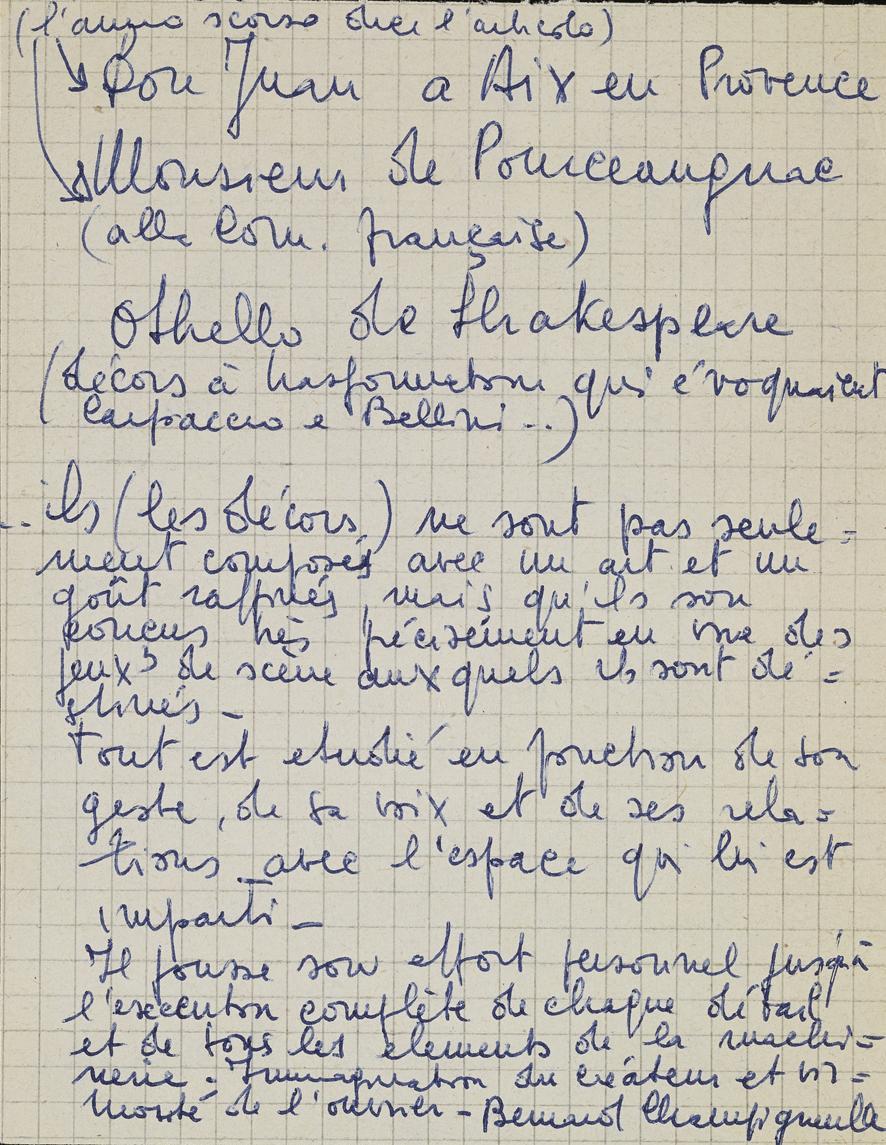 (l'anno scorso dice l'articolo)
Don Juan a Aix en Provence
Monsieur de Pourceaugnac
(alla Com. française)
Othello de Shakespeare
(décors à trasformation qui évoquaient
Carpaccio e Bellini...)
... ils (les décors) ne sont pas seule=
ment composés avec un art et un
goût raffinés, mais qu'ils son
concus très précisément en vue des
jeux de scène aux quels ils sont de=
stinés -
Tout est etudié en fonction de son
geste, de sa voix et de ses rela=
tions avec l'espace qui lui est
imparti -
Il pousse son effort personnel jusqu'à
l'execution complète de chaque détail
et de tous les elements de la machi=
nerie. Immagination du créateur et vir=
tuosité de l'ouvrier - Bernard Champigneulle